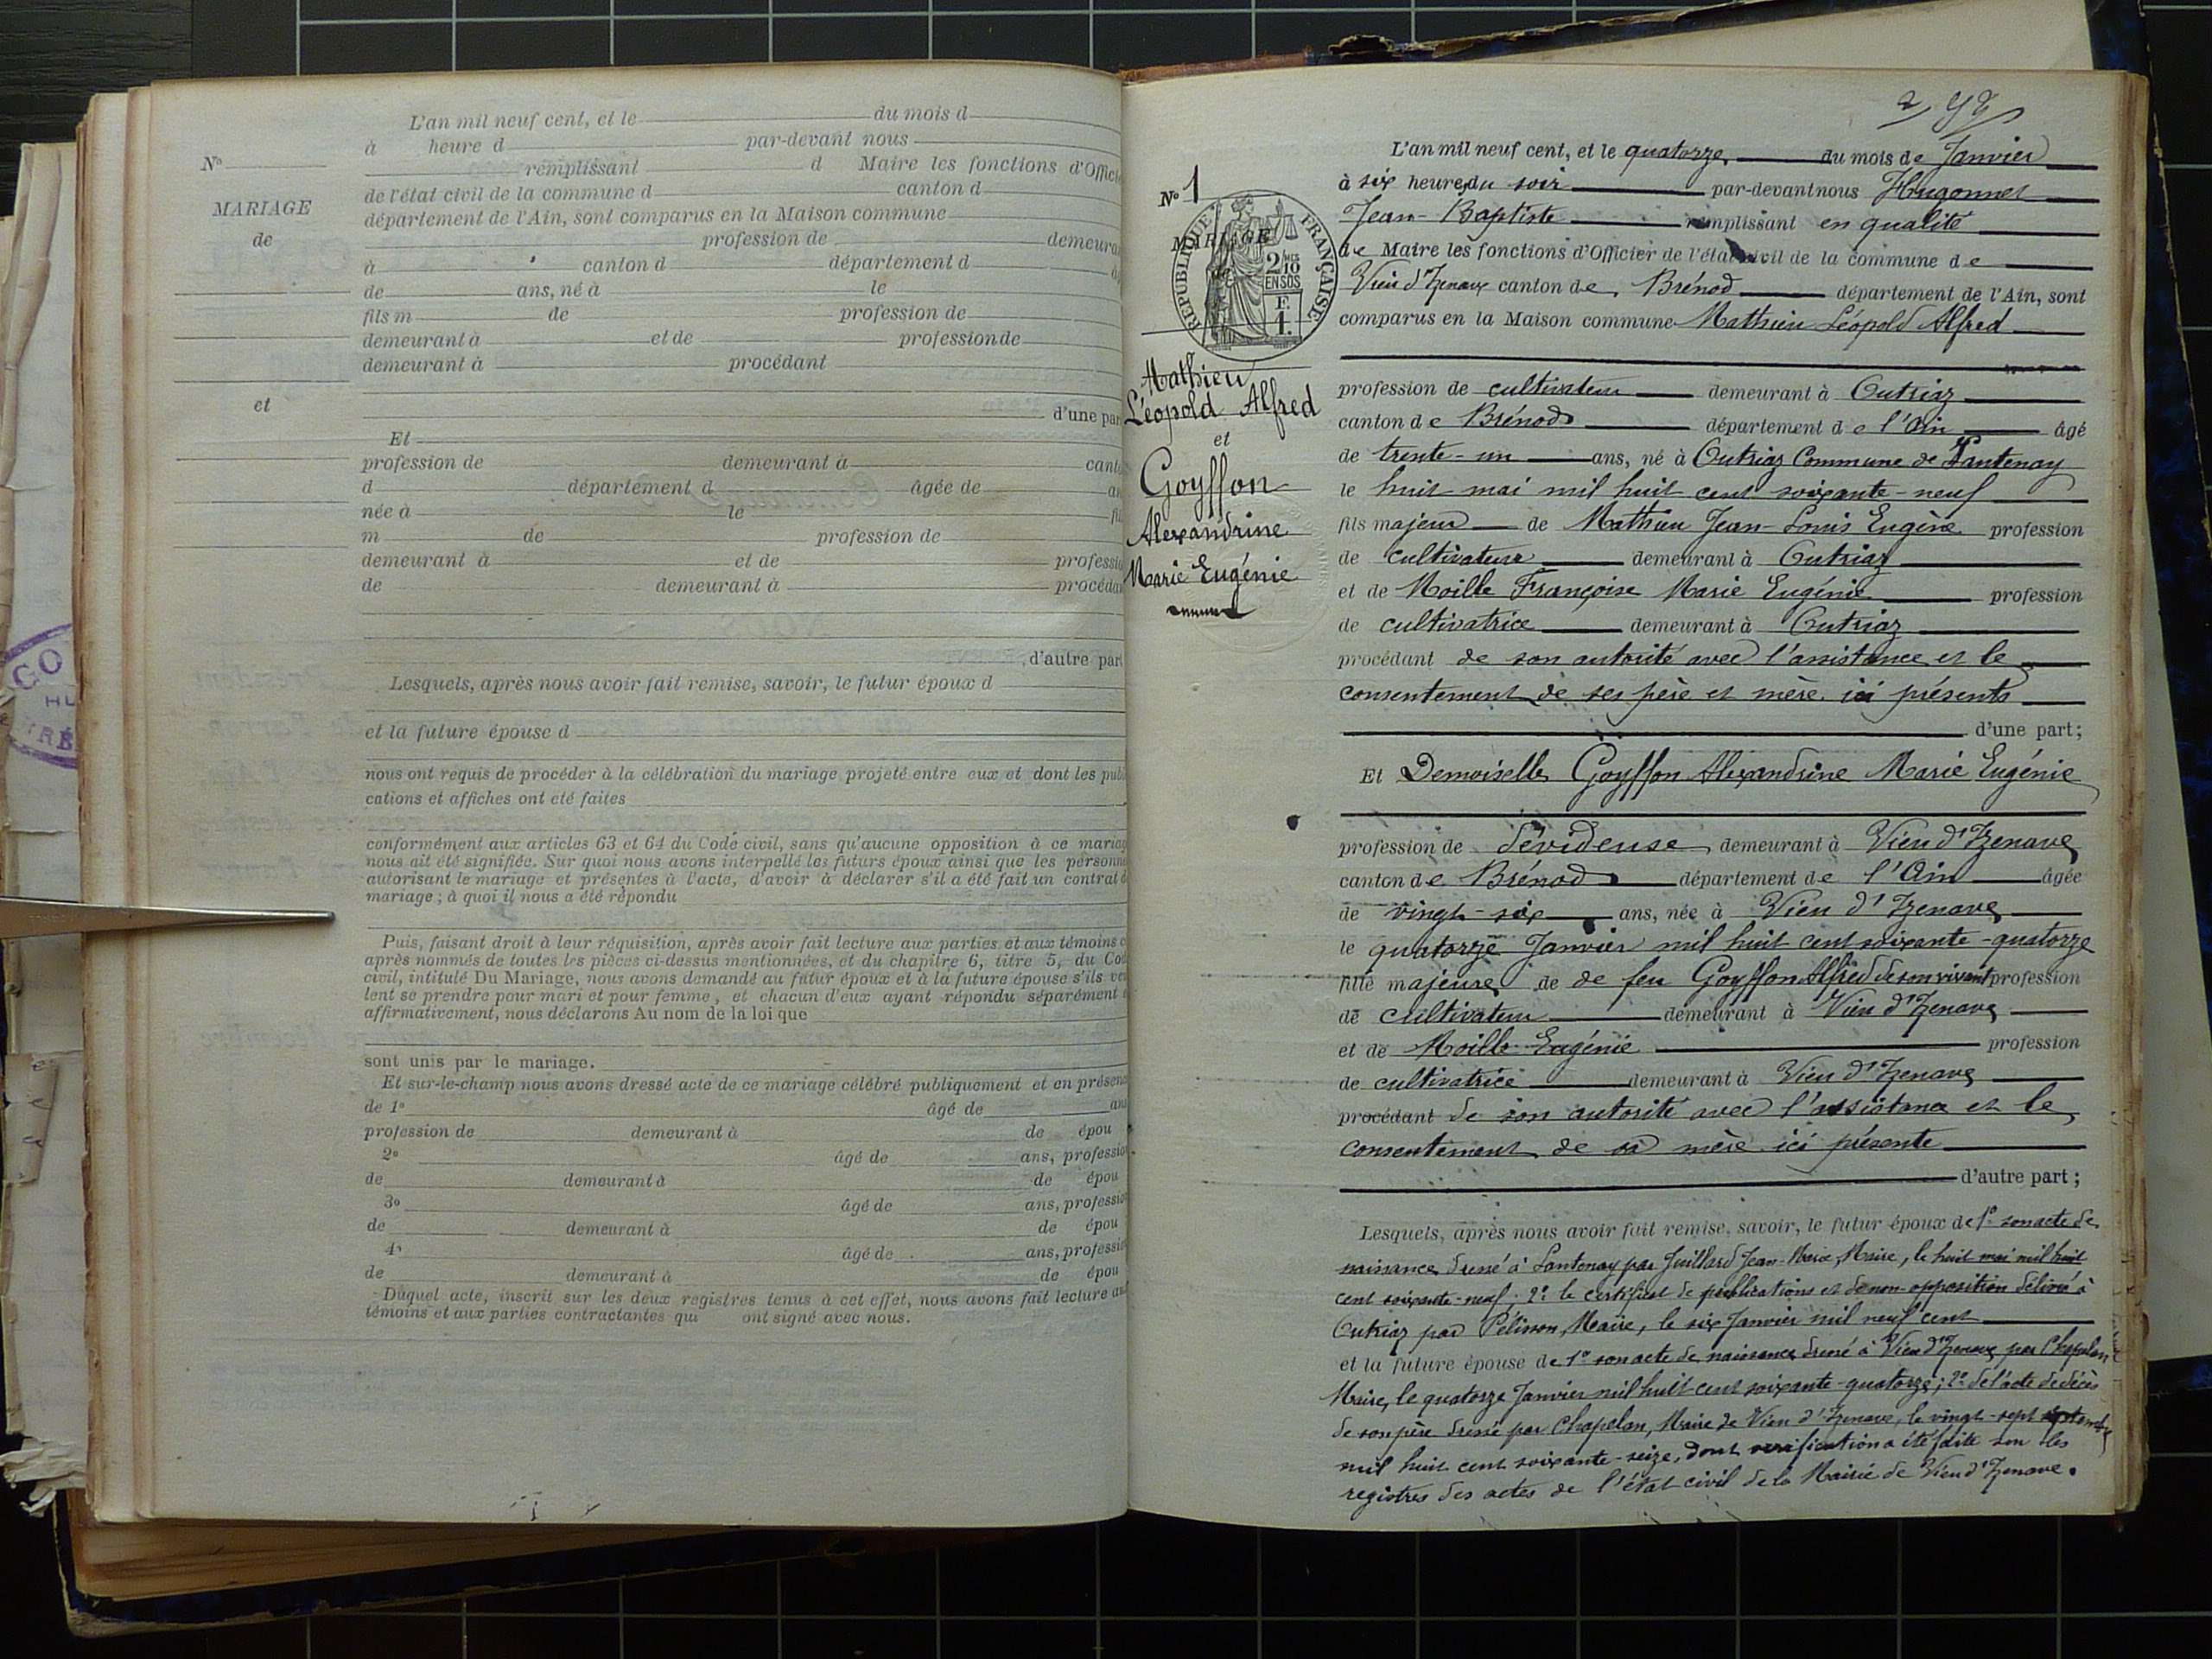 L'an mil neuf cent, et le du mois d
à heure d par-devant nous
remplissant d Maire les fonctions d'Offici
de l'état civil de la commune d canton d
département de l'Ain, sont comparus en la Maison commune
profession de demeura
à canton d département d
de ans, né à le
fils m de profession de
demeurant à et de profession de
demeurant à procédant
d'une par
Et
profession de demeurant à cant
d département d âgée de an
née à le fil
m de profession de
demeurant à et de professi
de demeurant à procédan
d'autre part
Lesquels, après nous avoir fait remise, savoir, le futur époux d
et la future épouse d
nous ont requis de procéder à la célébration du mariage projeté entre eux et dont les publ
cations et affiches ont été faites
conformément aux articles 63 et 64 du Code civil, sans qu'aucune opposition à ce mariag
nous ait été signifiée. Sur quoi nous avons interpellé les futurs époux ainsi que les personn
autorisant le mariage et présentes à l'acte, d'avoir à déclarer s'il a été fait un contrat d
mariage ; à quoi il nous a été répondu
Puis, faisant droit à leur réquisition, après avoir fait lecture aux parties et aux témoins c
après nommés de toutes les pièces ci-dessus mentionnées, et du chapitre 6, titre 5, du Cod
civil, intitulé Du Mariage, nous avons demandé au futur époux et à la future épouse s'ils veu
lent se prendre pour mari et pour femme, et chacun d'eux ayant répondu séparément e
affirmativement, nous déclarons Au nom de la loi que
sont unis par le mariage.
Et sur-le-champ nous avons dressé acte de ce mariage célébré publiquement et en présenc
de 1° âgé de ans
profession de demeurant à de épou
2° âgé de ans, professio
de demeurant à de épou
3° âgé de ans, professio
de demeurant à de épou
4° âgé de ans, professio
de demeurant à de épou
Duquel acte, inscrit sur les deux registres tenus à cet effet, nous avons fait lecture aux
témoins et aux parties contractantes qui ont signé avec nous.
N°
MARIAGE
de
et
GO
HU
TRÉ
N° 1
MARIAGE
de
RÉPUBLIQUE FRANÇAISE
2/10
MES
EN SUS
F.
1.
Mathieu
Léopold Alfred
et
Goyffon
Alexandrine
Marie Eugénie
L'an mil neuf cent, et le quatorze du mois de Janvier
à six heures du soir par-devant nous Hugonnet
Jean-Baptiste remplissant en qualité
de Maire les fonctions d'Officier de l'état civil de la commune de
Vieu d'Izenave canton de Brénod département de l'Ain, sont
comparus en la Maison commune Mathieu Léopold Alfred
profession de cultivateur demeurant à Outriaz
canton de Brénod département de l'Ain âgé
de trente-un ans, né à Outriaz Commune de Lantenay
le huit mai mil huit cent soixante-neuf
fils majeur de Mathieu Jean-Louis Eugène profession
de cultivateur demeurant à Outriaz
et de Moille Françoise Marie Eugénie profession
de cultivatrice demeurant à Outriaz
procédant de son autorité avec l'assistance et le
consentement de ses père et mère ici présents
d'une part ;
Et Demoiselle Goyffon Alexandrine Marie Eugénie
profession de dévideuse demeurant à Vieu d'Izenave
canton de Brénod département de l'Ain âgée
de vingt-six ans, née à Vieu d'Izenave
le quatorze Janvier mil huit cent soixante-quatorze
fille majeure de de feu Goyffon Alfred de son vivant profession
de cultivateur demeurant à Vieu d'Izenave
et de Moille Eugénie profession
de cultivatrice demeurant à Vieu d'Izenave
procédant de son autorité avec l'assistance et le
consentement de sa mère ici présente
d'autre part ;
Lesquels, après nous avoir fait remise, savoir, le futur époux de 1° son acte de
naissance dressé à Lantenay par Juillard Jean-Marie, Maire, le huit mai mil huit
cent soixante-neuf ; 2° le certificat de publications et de non-opposition délivré à
Outriaz par Pélisson, Maire, le six Janvier mil neuf cent
et la future épouse de 1° son acte de naissance dressé à Vieu d'Izenave par Chapelan
Maire, le quatorze Janvier mil huit cent soixante-quatorze ; 2° de l'acte de décès
de son père dressé par Chapelan, Maire de Vieu d'Izenave, le vingt-sept septembre
mil huit cent soixante-seize, dont vérification a été faite sur les
registres des actes de l'état civil de la Mairie de Vieu d'Izenave.